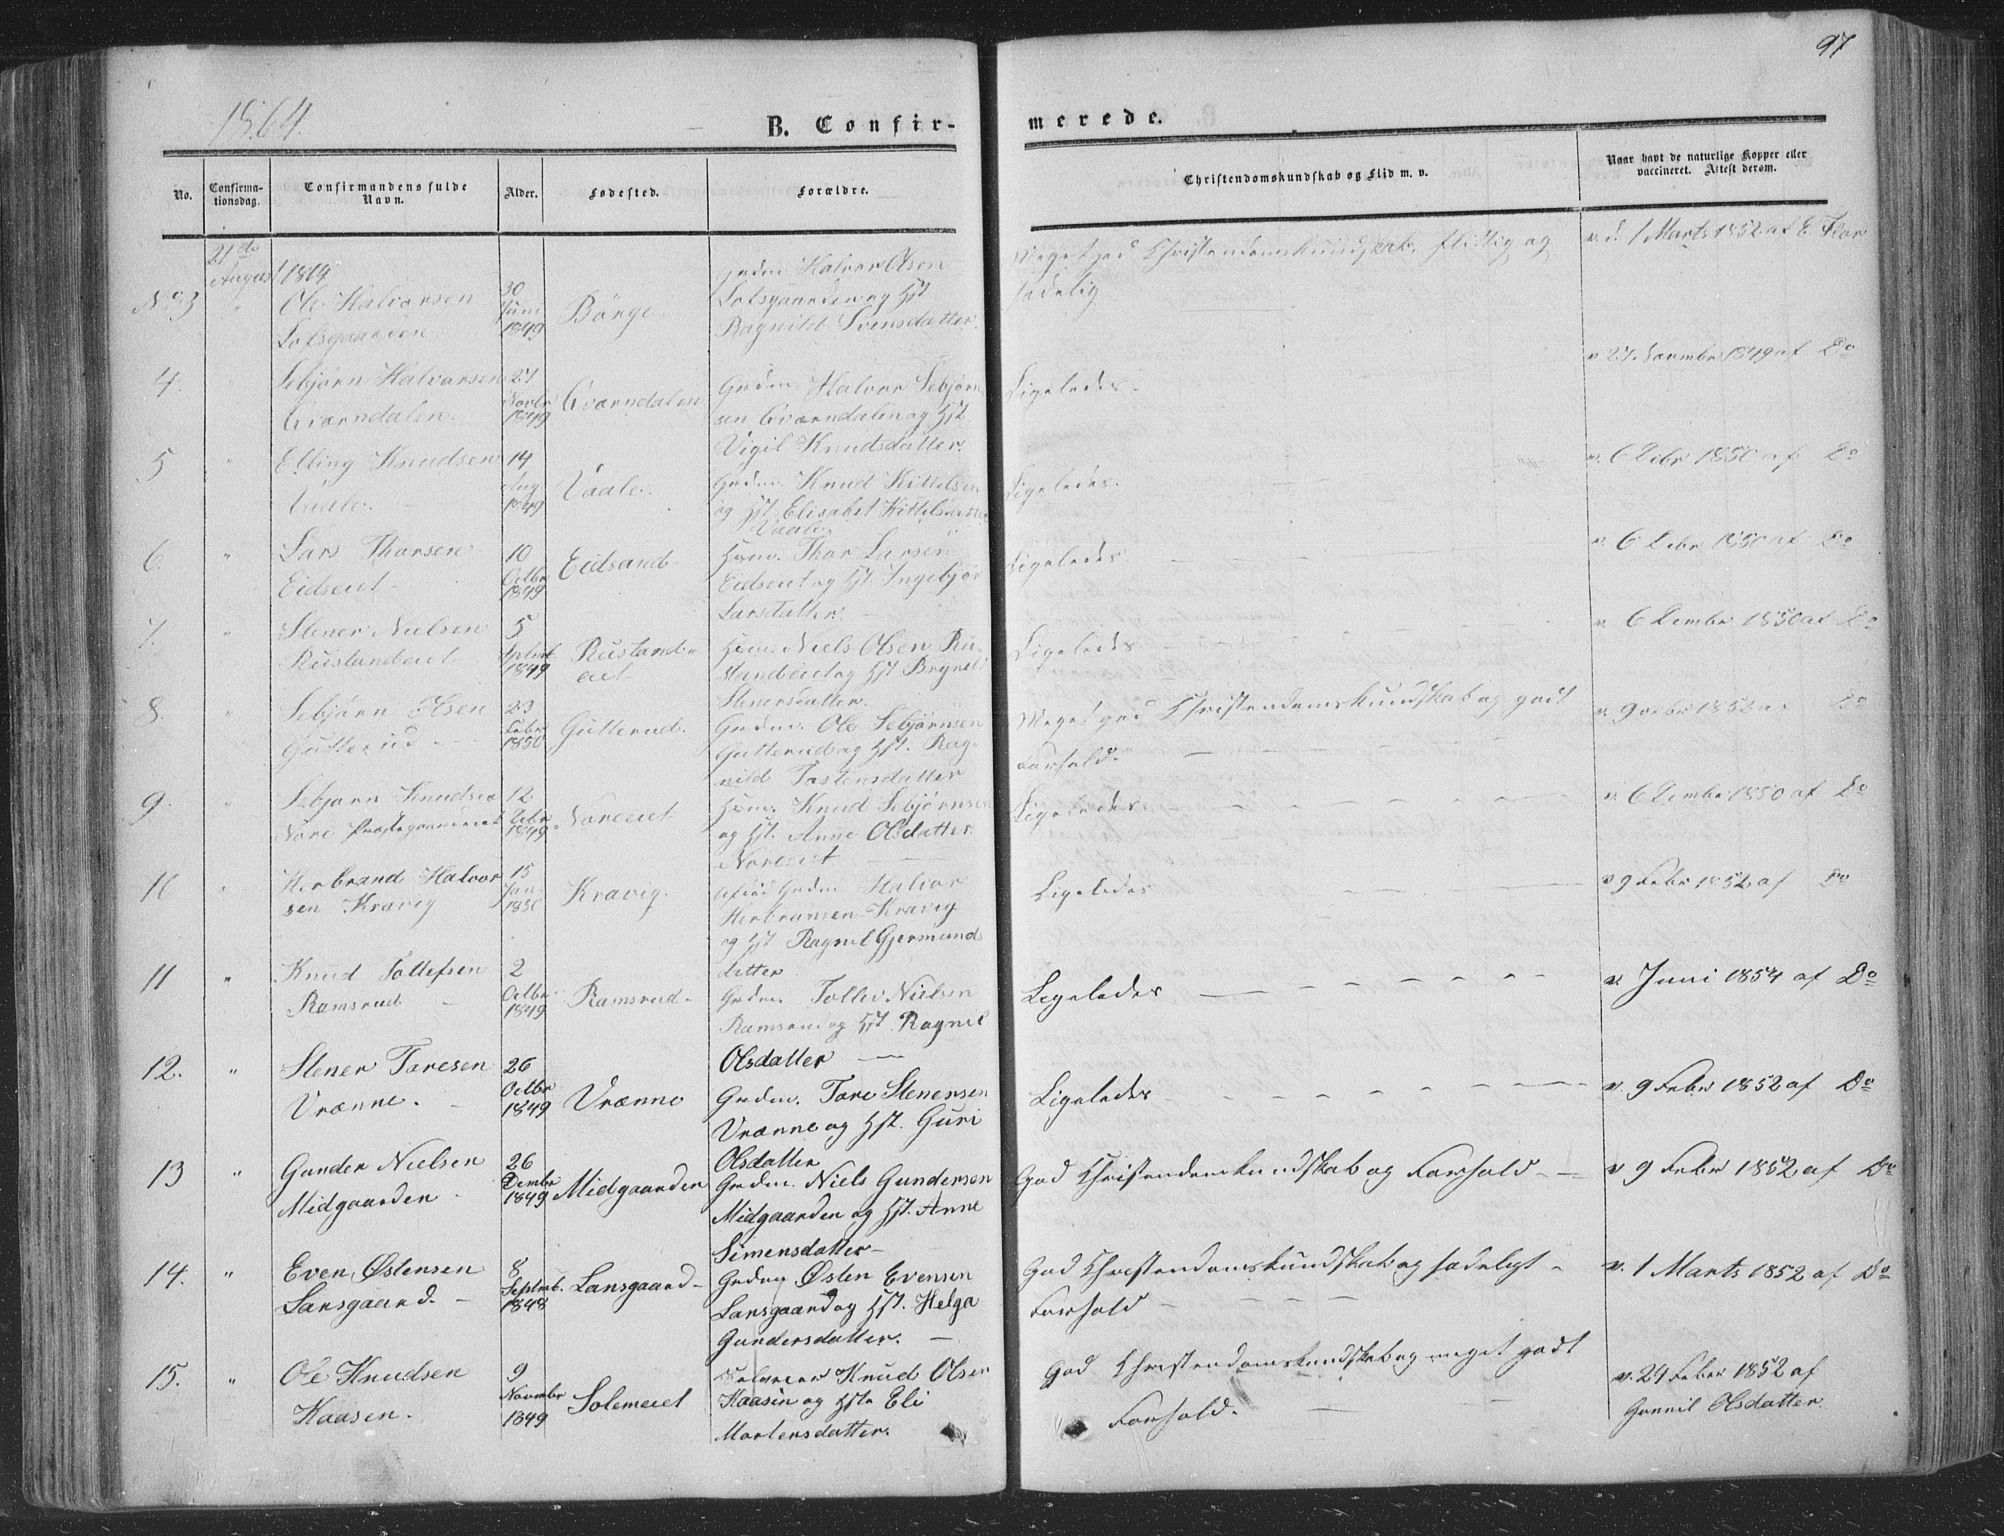 97
1864.
B. Confir-
merede.
No.
Confirma-
tionsdag.
Confirmandens fulde
Navn.
Alder.
Fødested.
Forældre.
Christendomskundskab og Flid m. v.
Naar havt de naturlige Kopper eller
vaccineret. Attest derom.
21de
August 1864
No. 3
"
Ole Halvorsen
Lofsgaarden
30
Juni
1849
Börge
Grdm. Halvor Olsen
Lofsgaarden og Hst
Ragnild Svensdatter.
Meget god Christendomskundskab, flittig og
sædelig
v. d. 1 Marts 1852 af E. Flor
4.
"
Sebjørn Halvorsen
Qværndalen.
27
Novbr
1849
Qværndalen
Grdm. Halvor Sebjørn
sen Qværndalen og Hst
Vigil Knudsdatter.
Ligeledes.
v 27. Novmbr 1849 af Do
5
"
Elling Knudsen
Vaale.
14
Aug
1849
Vaale.
Grdm. Knud Kittelsen
og Hst. Elisabet Kittelsdatter
Vaale
Ligeledes.
v. 6 Debr 1850 af Do
6.
"
Lars Thorsen
Eidseiet
10
Octbr
1849
Eidsand
Hsm. Thor Larsen
Eidseiet og Hst. Ingebjør
Larsdatter.
Ligeledes
v. 6 Debr 1850 af Do
7.
"
Stener Nielsen
Rustandeiet
5
Septmb
1849
Rustand-
eiet
Hsm. Niels Olsen Ru-
standeiet og Hst Brynel
Stenersdatter.
Ligeledes
v. 6 Dembr 1850 af Do
8.
"
Sebjørn Olsen
Gutterud
23
Febr
1850
Gutterud.
Grdm. Ole Sebjørnsen
Gutterud og Hst. Rag-
nild Tostensdatter
Meget god Christendomskundskab og godt
Forhold.
v. 9 Febr 1852 af Do
9.
"
Sebjørn Knudsen
Nore Præstegaardeiet
12
Octbr
1849
Noreeiet
Hsm. Knud Sebjørnsen
og Hst. Anne Olsdatter
Noreeiet
Ligeledes
v. 6 Dembr 1850 af Do
10
"
Herbrand Halvor
sen Kravig
15
Jan-
1850
Kravig.
Grdm Halvor
Herbransen Kravig
og Hst Ragnel Gjermunds
datter
Ligeledes
v 9 Febr 1852 af Do
11
"
Knud Tollefsen
Ramsrud
2
Octbr
1849
Ramsrud
Grdm. Tollev Nielsen
Ramsrud og Hst. Ragnel
Olsdatter
Ligeledes
v. Juni 1854 af Do
12.
"
Stener Toresen
Vrænne.
26
Octbr
1849
Vrænne
Grdm. Tore Stenersen
Vrænne og Hst. Guri
Olsdatter
Ligeledes
v. 9 Febr 1852 af Do
13
"
Gunder Nielsen
Midgaarden
26
Dembr
1849
Midgaarden
Grdm. Niels Gundersen
Midgaarden og Hst. Anne
Simensdatter
God Christendomskundskab og Forhold
v 9 Febr 1852 af Do
14.
"
Even Østensen
Lansgaard.
8
Septmb.
1848
Lansgaard
Grdm Østen Evensen
Lansgaard og Hst. Helga
Gundersdatter.
God Christendomskundskab og sædeligt
Forhold
v. 1 Marts 1852 af Do
15.
"
Ole Knudsen
Kaasen.
9
Novmbr
1849
Solemeiet
Knud Olsen
Kaasin og Hst Eli
Mortensdatter.
God Christendomskundskab og meget godt
Forhold.
v. 24 Febr 1852 af
Gunnil Olsdatter